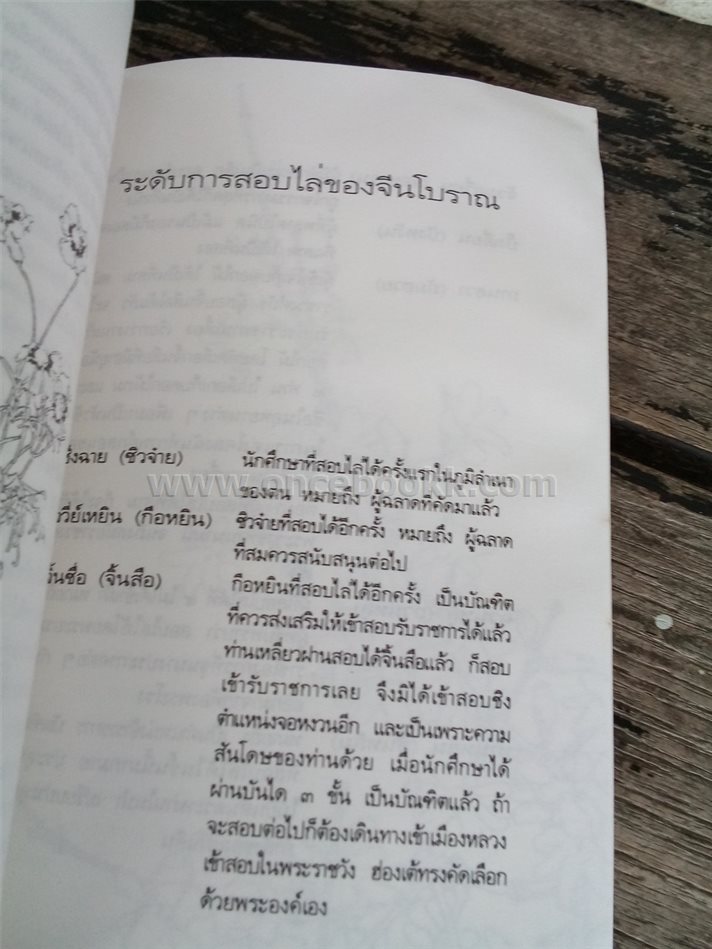 ระดับการสอบไล่ของจีนโบราณ
ซิ่งฉาย (ซิวจ๋าย) นักศึกษาที่สอบไล่ได้ครั้งแรกในภูมิลำเนา
ของตน หมายถึง ผู้ฉลาดที่คัดมาแล้ว
www.oncebookk.com
วีย์เหยิน (กือหยิน) ซิวจ๋ายที่สอบได้อีกครั้ง หมายถึง ผู้ฉลาด
ที่สมควรสนับสนุนต่อไป
นซื่อ (จิ้นสือ) กือหยินที่สอบไล่ได้อีกครั้ง เป็นบัณฑิต
ที่ควรส่งเสริมให้เข้าสอบรับราชการได้แล้ว
ท่านเหลี่ยวฝานสอบได้จิ้นสือแล้ว ก็สอบ
เข้ารับราชการเลย จึงมิได้เข้าสอบชิง
ตำแหน่งจอหงวนอีก และเป็นเพราะความ
สันโดษของท่านด้วย เมื่อนักศึกษาได้
ผ่านบันได ๓ ขั้น เป็นบัณฑิตแล้ว ถ้า
จะสอบต่อไปก็ต้องเดินทางเข้าเมืองหลวง
เข้าสอบในพระราชวัง ฮ่องเต้ทรงคัดเลือก
ด้วยพระองค์เอง